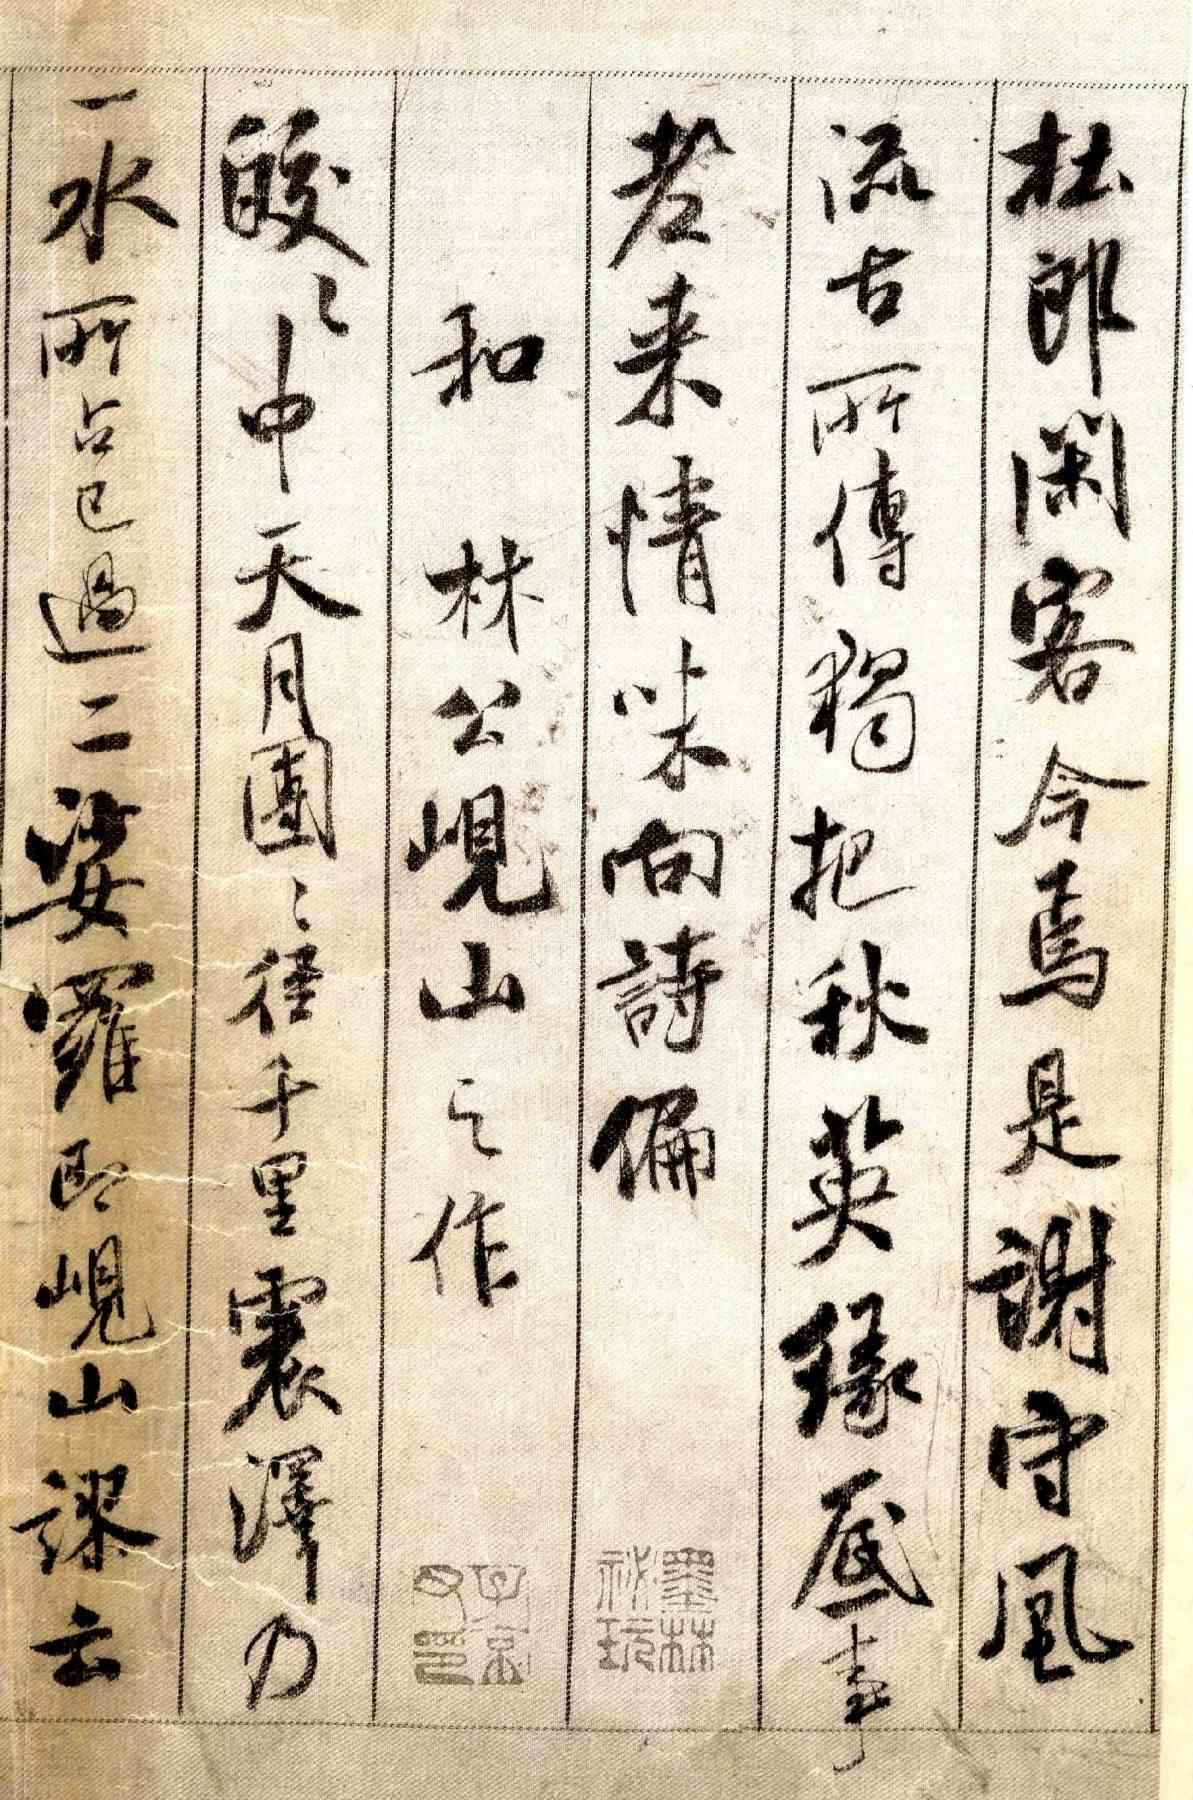 杜郎閑客今焉是謝守風
流古所傳獨把秋英緣底事
老来情味向詩偏
墨林祕玩
和林公峴山之作
子京父印
皎〻中天月團〻径千里震澤乃
一水所占已過二娑羅即峴山謬云